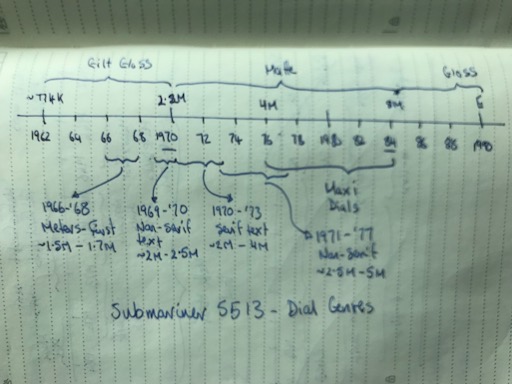 Gilt Gloss Matte Gloss
~774K 2.2M 4M 8M E
1962 64 66 68 1970 72 74 76 78 1980 82 84 86 88 1990
1966-'68
Meters-First
~1.5M - 1.7M
1969-'70
Non-Serif
text
~2M-2.5M
1970-'73
Serif text
~2M - 4M
Maxi
Dials
1971-'77
Non-Serif
~2.5M-5M
Submariner 5513 - Dial Genres